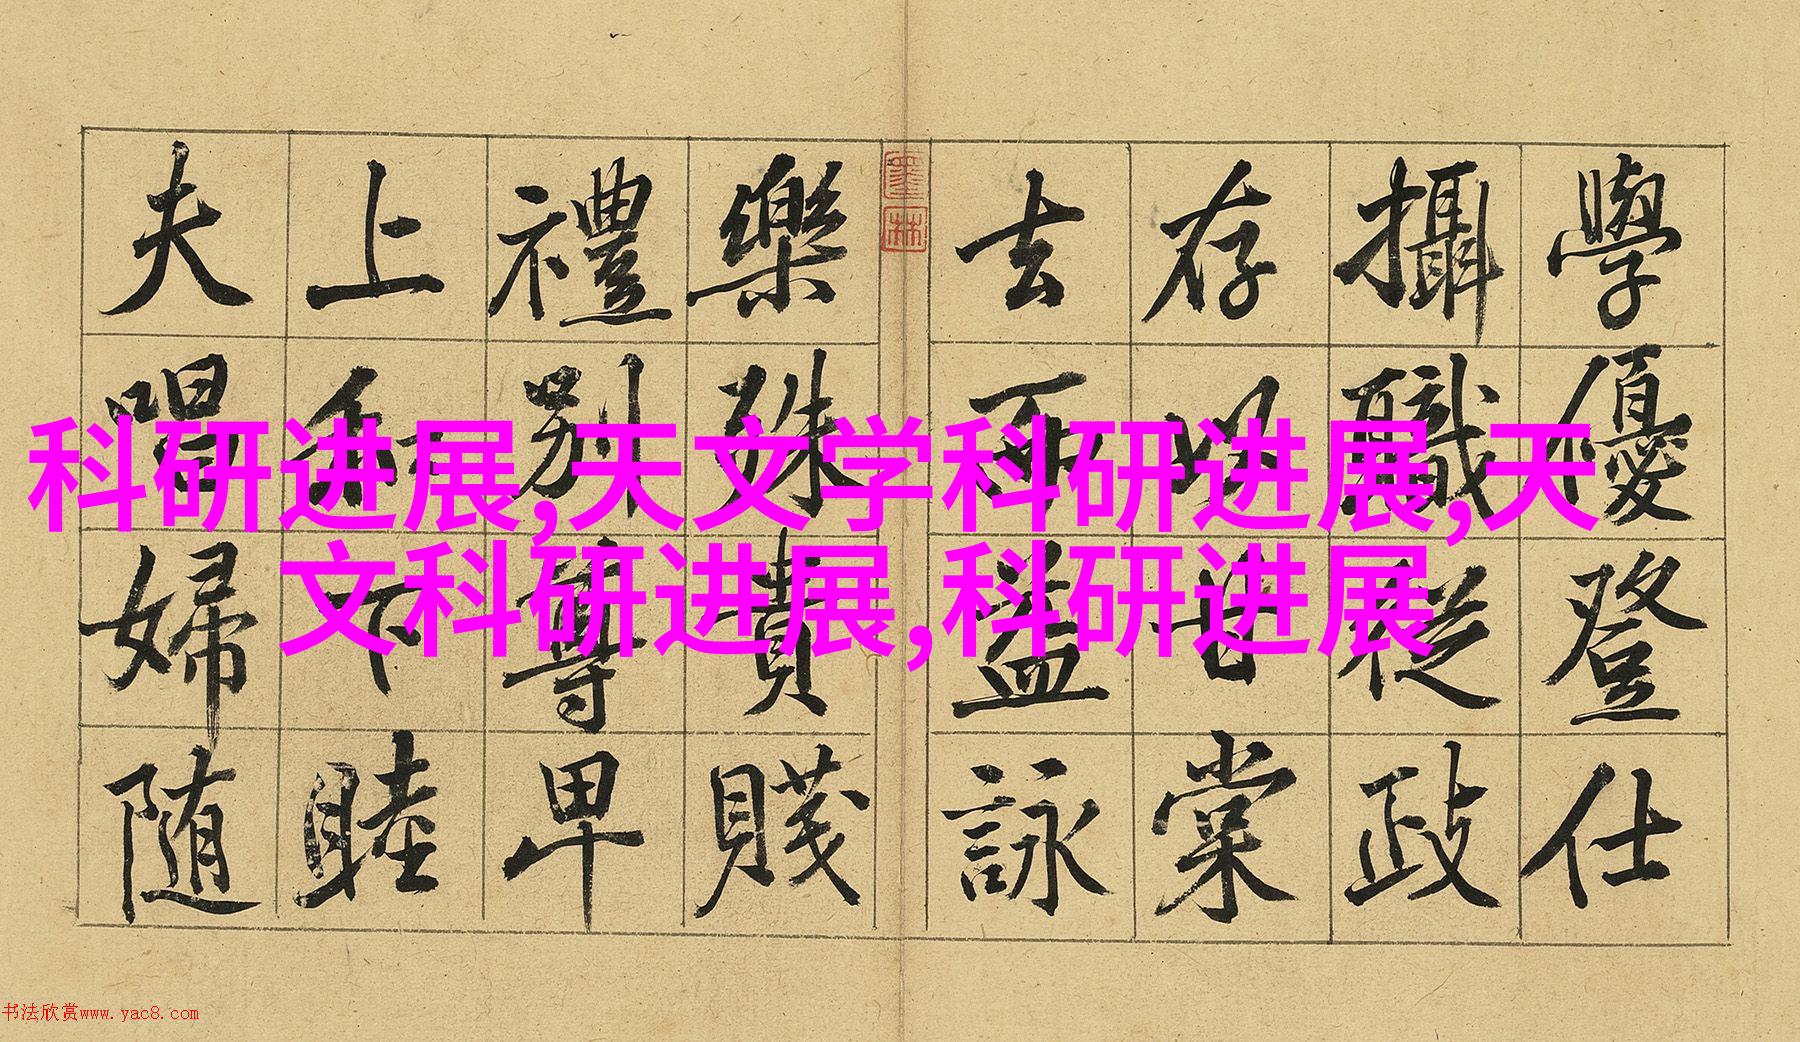 學優登仕
攝職從政
存以甘棠
去而益詠
樂殊貴賤
禮別尊卑
上和下睦
夫唱婦随
墨林
科研进展,天文学科研进展,天
文科研进展,科研进展
书法欣赏www.yac8.com